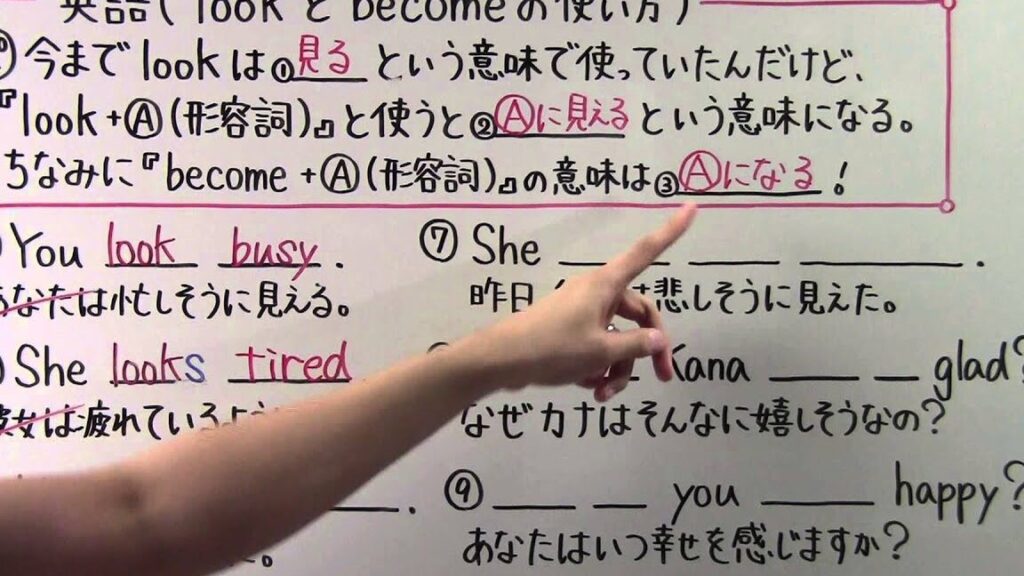 英語(lookとbecomeの使い方)
今までlookは①見るという意味で使っていたんだけど、
『look+Ⓐ(形容詞)』と使うと②Ⓐに見えるという意味になる。
ちなみに『become+Ⓐ(形容詞)』の意味は③Ⓐになる!
You look busy.
あなたは忙しそうに見える。
She looks tired
彼女は疲れている
⑦ She ___ ___ ___.
昨日 は悲しそうに見えた。
Kana ___ ___ glad?
なぜカナはそんなに嬉しそうなの?
⑨ ___ ___ you ___ happy?
あなたはいつ幸せを感じますか?